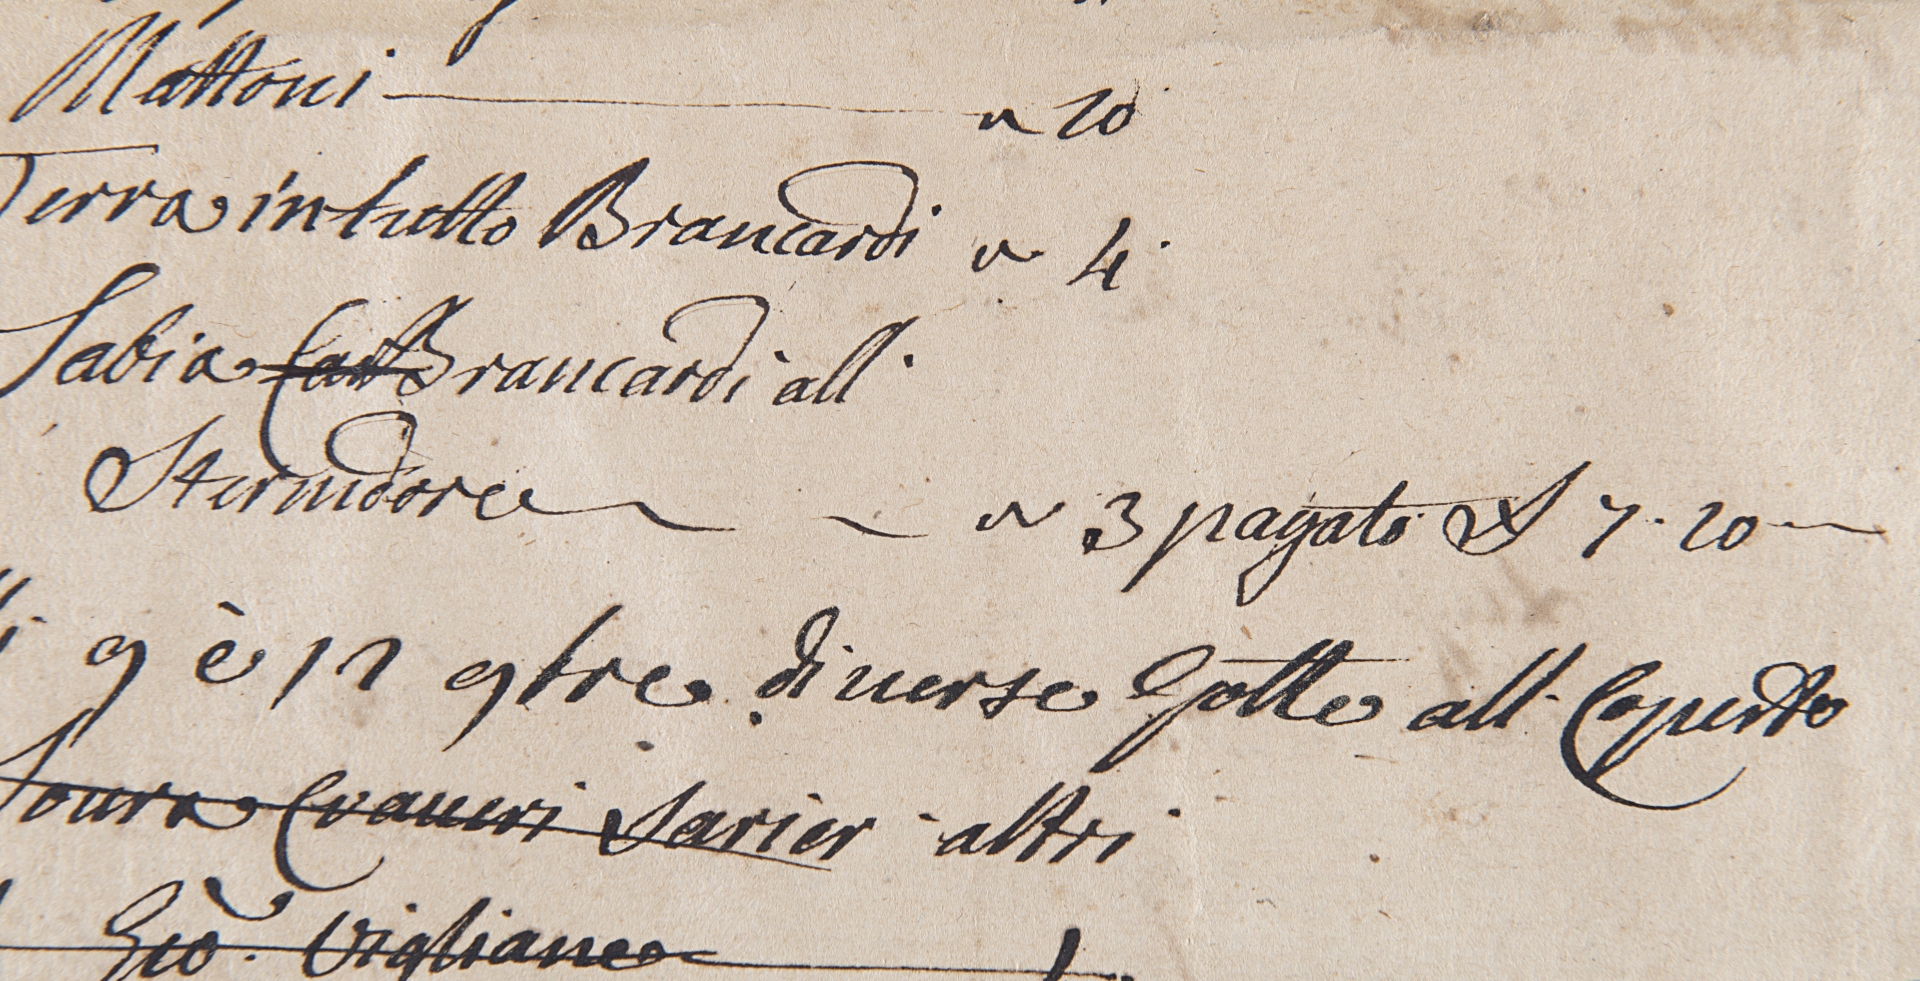 Mattoni — n 20
Terra in tutto Brancardi n 4.
Sabia Brancardi all
Sternidore n 3 pagato 7. 20
9 è 12 9tre diverse Gotte all Coperto
Soura Cravieri Sarier altri
Gio. Vigliane